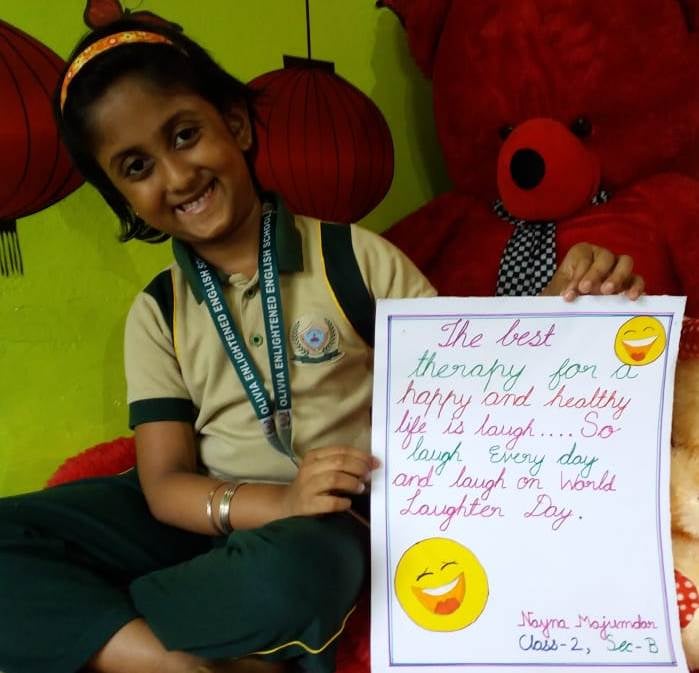 OLIVIA ENLIGHTENED ENGLISH SC
OLIVIA ENLIGHTENED ENGLISH SCHOOL
The best
therapy for a
happy and healthy
life is laugh.... So
laugh Every day
and laugh on World
Laughter Day.
Nayna Majumdar
Class-2, Sec-B